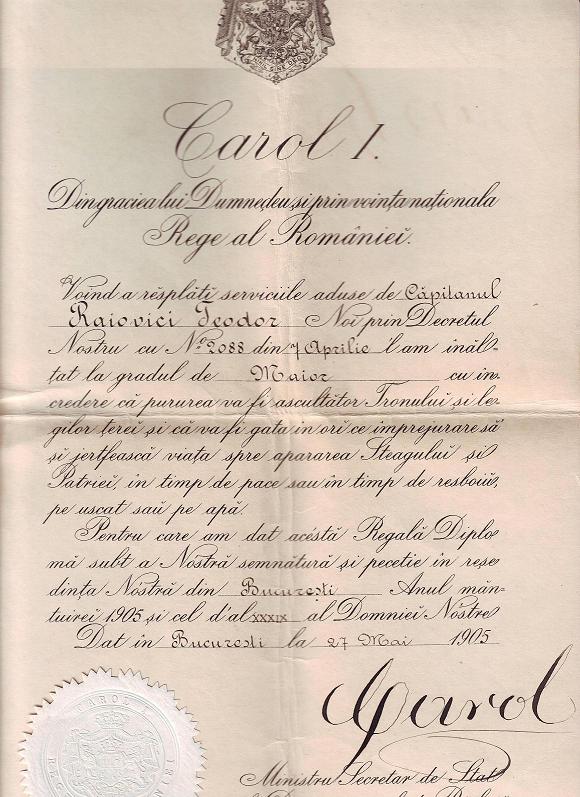 NIHIL SINE DEO
Carol I.
Din graciea lui Dumneḑeu și prin voința națională
Rege al Românieĭ.
Voind a rĕsplăti serviciile aduse de Căpitanul
Raiovici Teodor Noi prin Decretul
Nostru cu No. 2088 din 7 Aprilie l'am înăl-
țat la gradul de Maior cu în
credere că pururea va fi ascultător Tronuluĭ și le
gilor țereĭ și că va fi gata în orĭ ce împrejurare să
șĭ jertfească viața spre apărarea Steaguluĭ și
Patrieĭ, în timp de pace sau în timp de resboiŭ,
pe uscat saŭ pe apă.
Pentru care am dat acéstă Regală Diplo
mă subt a Nóstră semnătură și pecetie în reșe
dința Nóstră din Bucureștĭ Anul mân-
tuireĭ 1905 și cel d'al XXXIX al Domnieĭ Nóstre
Dat în Bucureștĭ la 27 Mai 1905
Carol
CAROL I
Ministru Secretar de Stat